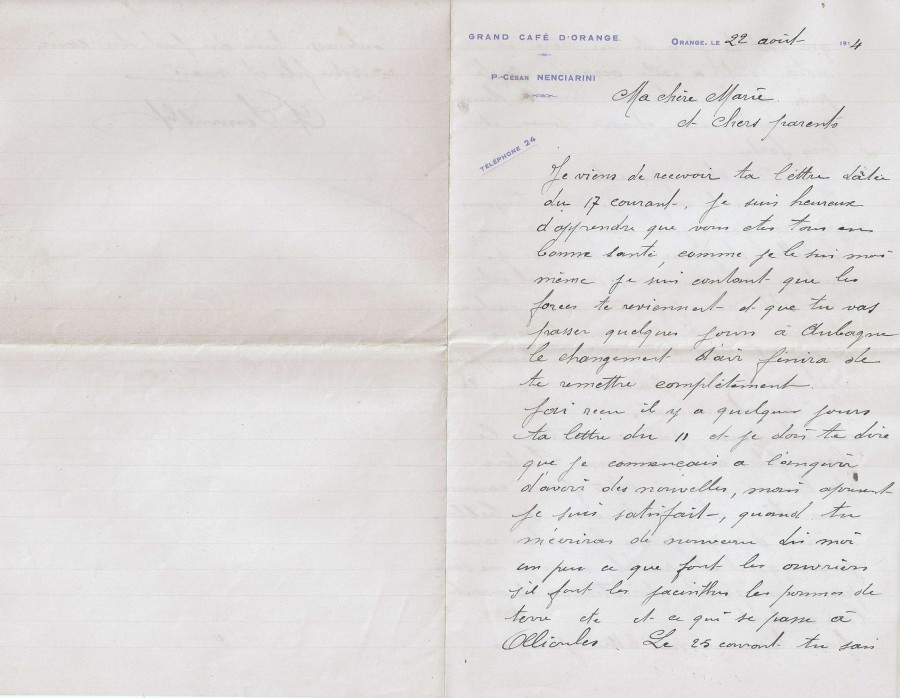 GRAND CAFÉ D'ORANGE
ORANGE, LE 22 août 1914
P.-CÉSAR NENCIARINI
Ma chère Marie
et chers parents
TÉLÉPHONE 24
Je viens de recevoir ta léttre datée
du 17 courant, je suis heureux
d'apprendre que vous etes tous en
bonne santé, comme je le suis moi
même je suis contant que les
forces te reviennent et que tu vas
passer quelques jours à Aubagne
le changement d'air finira de
te remettre complètement.
J'ai reçu il y a quelques jours
ta léttre du 11 et je dois te dire
que je comencais a
d'avoir des nouvelles, mais apresent
je suis satisfait, quand tu
m'écriras de nouveau dis moi
un peu ce que font les ouvriers
s'il font les jacinthes les pommes de
terre etc et ce qui se passe à
Ollioules. Le 25 courant tu sais